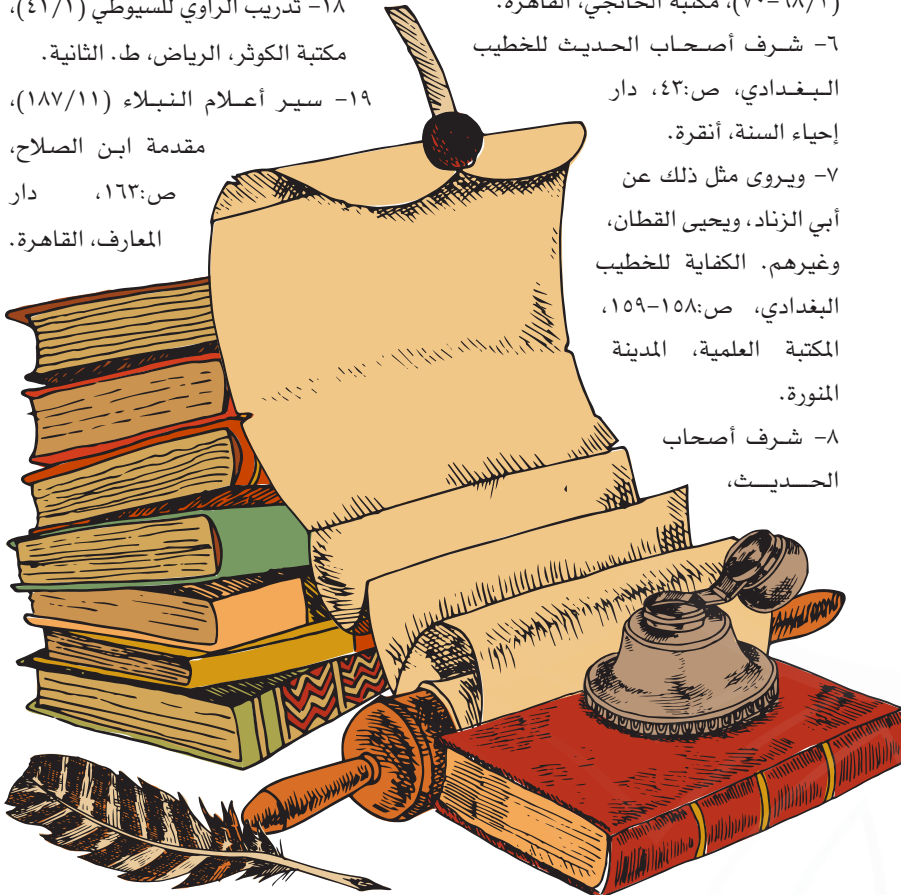 (٦٨/١-٧٠)، مكتبة الخانجي، القاهرة.
٦- شرف أصحاب الحديث للخطيب
البغدادي، ص:٤٣، دار
إحياء السنة، أنقرة.
٧- ويروى مثل ذلك عن
أبي الزناد، ويحيى القطان،
وغيرهم. الكفاية للخطيب
البغدادي، ص:١٥٨-١٥٩،
المكتبة العلمية، المدينة
المنورة.
٨- شرف أصحاب
الحديث،
١٨- تدريب الراوي للسيوطي (٤١/١)،
مكتبة الكوثر، الرياض، ط. الثانية.
١٩- سير أعلام النبلاء (١٨٧/١١)،
مقدمة ابن الصلاح،
ص:١٦٣، دار
المعارف، القاهرة.